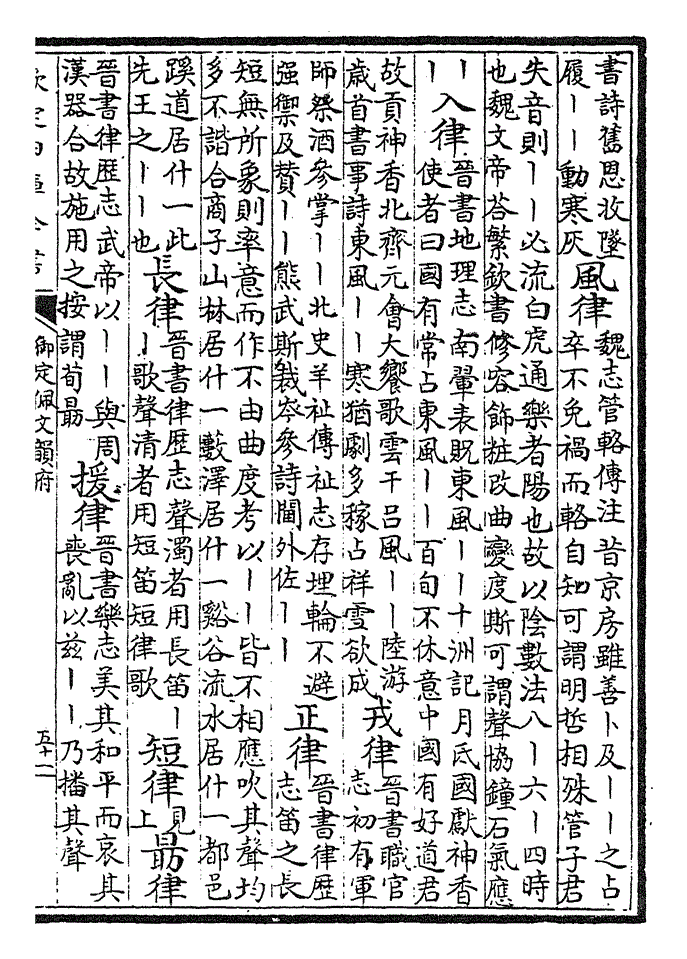 書詩舊恩收墜
履丨丨動寒灰
風律
魏志管輅傳注昔京房雖善卜及丨丨之占
卒不免禍而輅自知可謂明哲相殊管子君
失音則丨丨必流白虎通樂者陽也故以陰數法八丨六丨四時
也魏文帝荅繁欽書修容飾粧改曲變度斯可謂聲協鐘石氣應
丨
丨
入律
晉書地理志南翬表貺東風丨丨十洲記月氏國獻神香
使者曰國有常占東風丨丨百旬不休意中國有好道君
故貢神香北齊元會大饗歌雲干呂風丨丨陸游
歲首書事詩東風丨丨寒猶劇多稼占祥雪欲成
戎律
晉書職官
志初有軍
師祭酒參掌丨丨北史羊祉傳祉志存埋輪不避
强禦及贊丨丨熊武斯裁岑參詩閫外佐丨丨
正律
晉書律歷
志笛之長
短無所象則率意而作不由曲度考以丨丨皆不相應吹其聲均
多不諧合商子山林居什一藪澤居什一谿谷流水居什一都邑
蹊道居什一此
先王之丨丨也
長律
晉書律歷志聲濁者用長笛丨
丨歌聲清者用短笛短律歌
短律
見
上
勗律
晉書律歷志武帝以丨丨與周
漢器合故施用之按謂荀勗
援律
晉書樂志美其和平而哀其
喪亂以兹丨丨乃播其聲
欽定四庫全書
御定佩文韻府